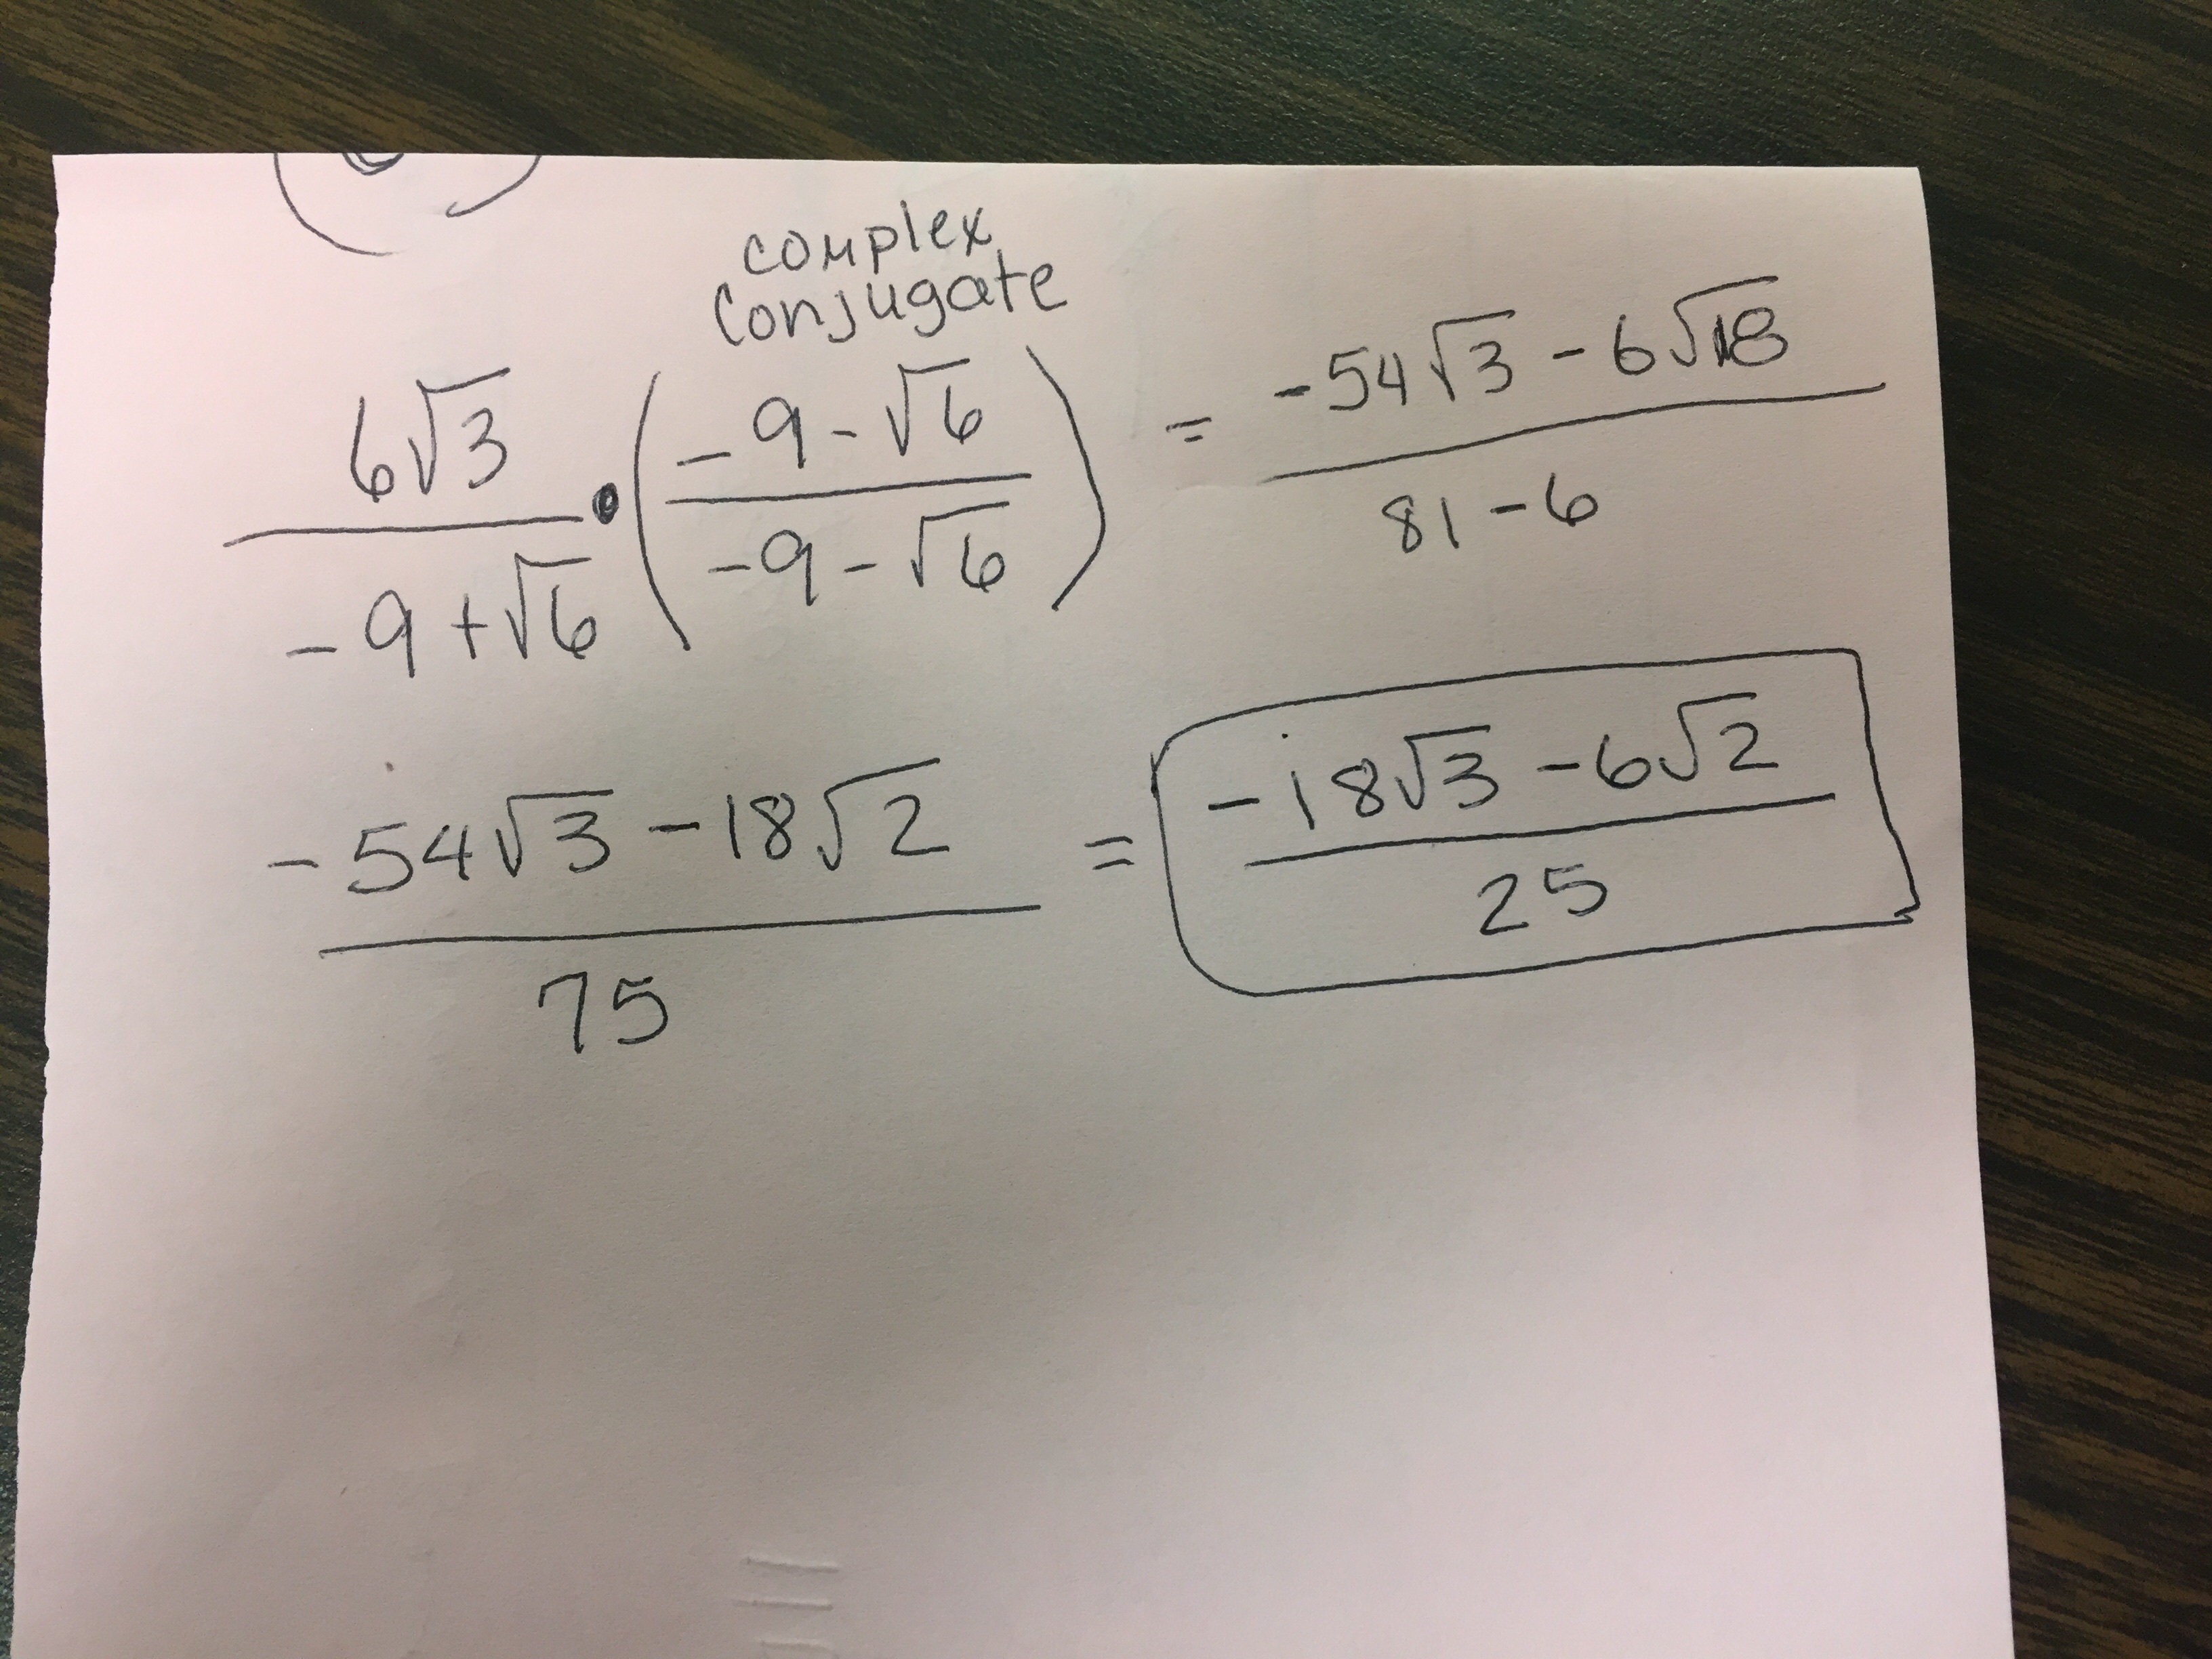 complex
conjugate
6√3 / -9+√6 • (-9-√6 / -9-√6) = -54√3 - 6√18 / 81-6
-54√3 - 18√2 / 75 = -18√3 - 6√2 / 25